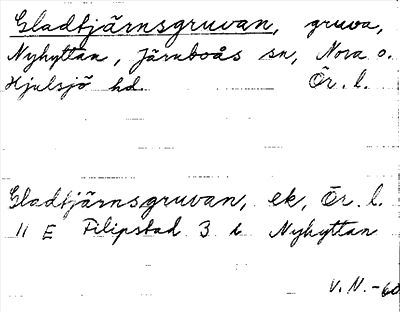 Gladtjärnsgruvan, gruva,
Nyhyttan, Järnboås sn, Nora o.
Hjulsjö hd. Ör. l.
Gladtjärnsgruvan, ek, Ör. l.
11 E Filipstad 3 i Nyhyttan
V. N. -60